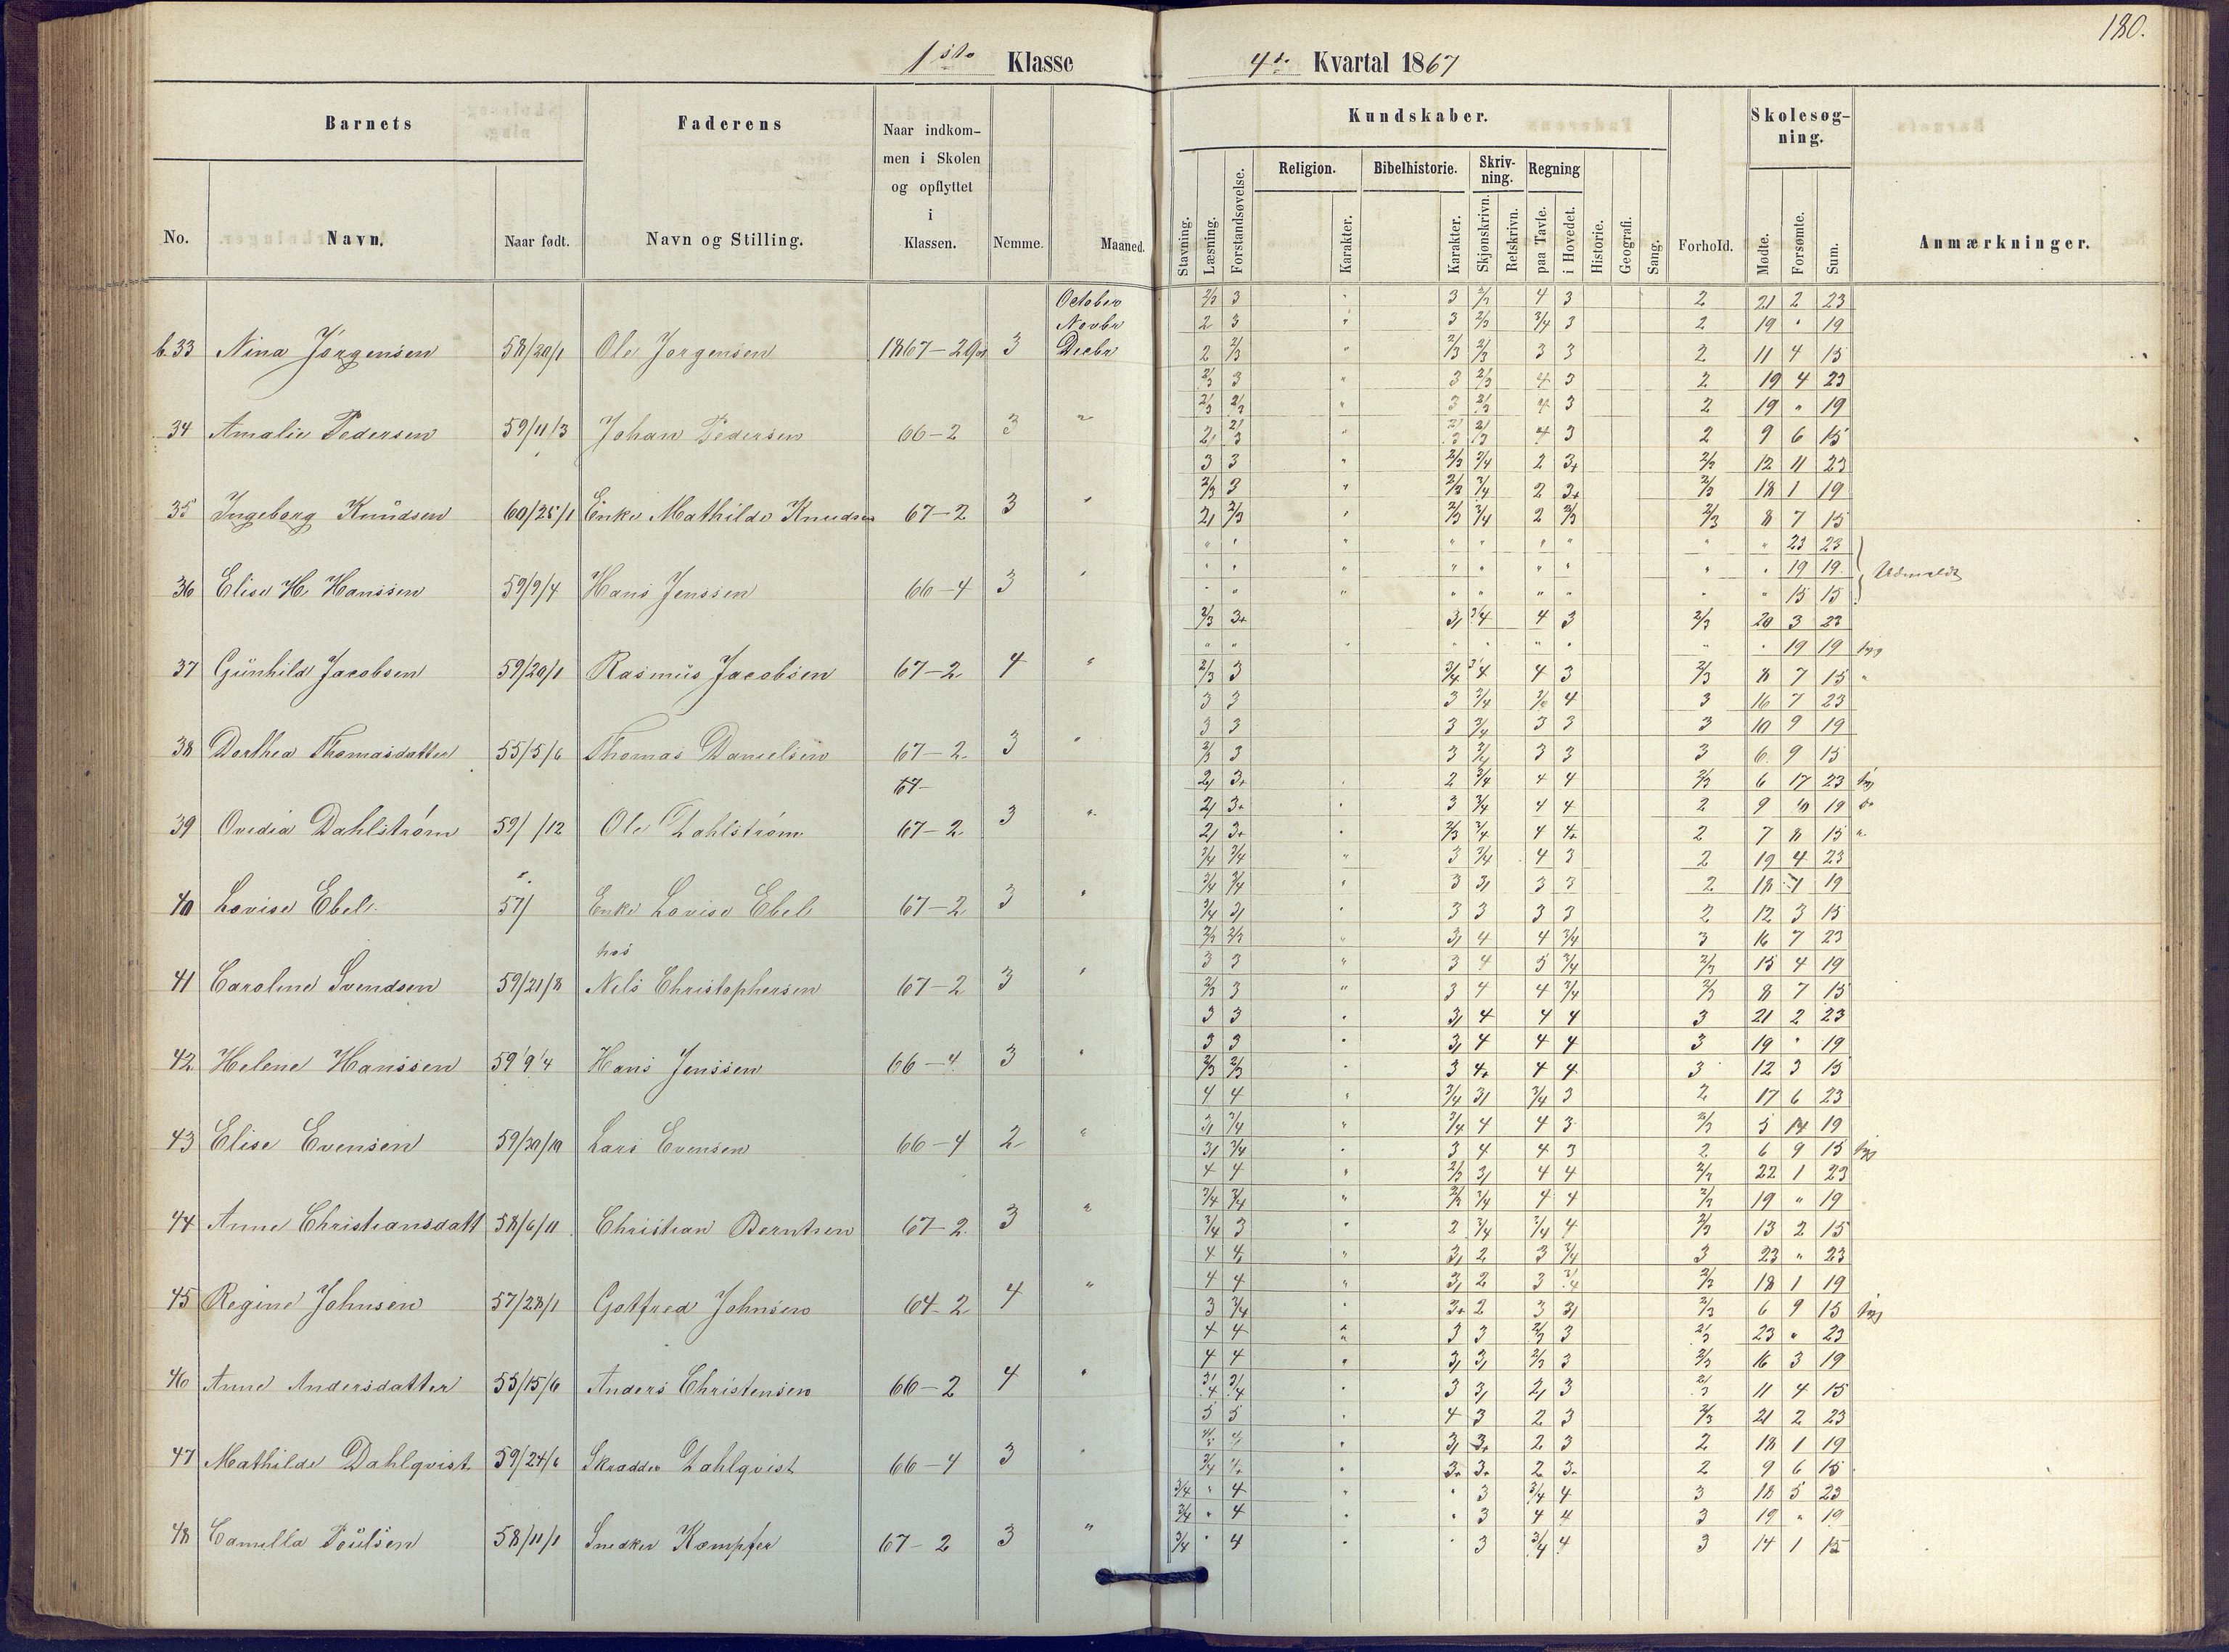 180.
1ste Klasse 4de Kvartal 1867
Barnets Faderens Naar indkommen i Skolen og opflyttet i Klassen. Nemme. Maaned. Kundskaber. Forhold. Skolesøgning. Anmærkninger.
No. Navn. Naar født. Navn og Stilling. Stavning. Læsning. Forstandsøvelse. Religion. Karakter. Bibelhistorie. Karakter. Skrivning. Skjønskrivn. Retskrivn. Regning paa Tavle. i Hovedet. Historie. Geografi. Sang. Mødte. Forsømte. Sum.
October 2/3 3 " 3 2/3 4 3 2 21 2 23
Novbr 2 3 " 3 2/3 3/4 3 2 19 " 19
b.33 Nina Jörgensen 58/20/1 Ole Jörgensen 1867-2 3 Decbr 2 2/3 " 2/3 2/3 3 3 2 11 4 15
2/3 3 " 3 2/3 4 3 2 19 4 23
2/3 2/3 " 3 2/3 4 3 2 19 " 19
34 Amalie Pedersen 59/11/3 Johan Pedersen 66-2 3 " 2, 2/3 " 2/3 2/3 4 3 2 9 6 15
3 3 " 2/3 3/4 2 3+ 2/3 12 11 23
2/3 3 " 2/3 3/4 2 3+ 2/3 18 1 19
35 Ingeborg Knudsen 60/25/1 Enke Mathilde Knudsen 67-2 3 " 2, 2/3 " 2/3 3/4 2 2/3 2/3 8 7 15
" " " " " " " " " 23 23
" " " " " " " " " 19 19 Udmeldt
36 Elise H. Hanssen 59/9/4 Hans Jenssen 66-4 3 " " " " " " " " " " 15 15
2/3 3+ 3, 3/4 4 3 2/3 20 3 23
" " " " " " " " " 19 19 syg
37 Gunhild Jacobsen 59/20/1 Rasmus Jacobsen 67-2 4 " 2/3 3 3/4 3/4 4 3 2/3 8 7 15 "
3 3 3 3/4 4 3 16 7 23
3 3 3 3/4 3 3 3 10 9 19
38 Dorthea Thomasdatter 55/5/6 Thomas Danielsen 67-2 3 " 2/3 3 3 3/4 3 3 3 6 9 15
67-
2, 3+ 2 3/4 4 4 2/3 6 17 23 syg
2, 3+ " 3 3/4 4 4 2 9 10 19 do
39 Ovidia Dahlström 59/ /12 Ole Dahlström 67-2 3 " 2, 3+ " 2/3 3/4 4 4+ 2 7 8 15 "
3/4 3/4 " 3 3/4 4 3 2 19 4 23
3/4 3/4 " 3 3, 3 3 2 18 1 19
40 Lovise Ebel 57/ Enke Lovise Ebel 67-2 3 " 3/4 3, " 3 3 3 3 2 12 3 15
hos
2/3 2/3 " 3, 4 4 3/4 3 16 7 23
3 3 " 3 4 5 3/4 2/3 15 4 19
41 Caroline Svendsen 59/21/8 Nils Christophersen 67-2 3 " 2/3 3 " 3 4 4 3/4 2/3 8 7 15
3 3 " 3, 4 4 4 3 21 2 23
3 3 " 3, 4 4 4 3 19 " 19
42 Helene Hanssen 59/9/4 Hans Jenssen 66-4 3 " 2/3 2/3 " 3 4+ 4 4 3 12 3 15
4 4 " 3/4 3, 3/4 3 2 17 6 23
3, 3/4 " 3/4 4 4 3 2/3 5 14 19
43 Elise Evensen 59/30/10 Lars Evensen 66-4 2 " 3, 3/4 " 3 4 4 3 2 6 9 15 syg
4 4 " 2/3 3, 4 4 2/3 22 1 23
3/4 3/4 " 2/3 3/4 4 4 2/3 19 " 19
44 Anne Christiansdatt 58/6/11 Christian Berntsen 67-2 3 " 3/4 3 " 2 3/4 3/4 4 2/3 13 2 15
4 4, " 3, 2 3 3/4 3 23 " 23
4 4 " 3, 2 3 3/4 2/3 18 1 19
45 Regine Johnsen 57/28/1 Gotfred Johnsen 64-2 4 " 3 3/4 " 3+ 2 3 3, 2/3 6 9 15 syg
4 4 " 3 3 2/3 3 2/3 23 " 23
4 4 " 3, 3, 2/3 3 2/3 16 3 19
46 Anne Andersdatter 55/15/6 Anders Christensen 66-2 4 " 3/4 3/4 " 3 3, 2, 3 2/3 11 4 15
5 5 " 4 3 2 3 2/3 21 2 23
" 3, 3+ 2 3 2 18 1 19
47 Mathilde Dahlqvist 59/24/6 Skrædder Dahlqvist 66-4 3 " 3/4 4+ " 3+ 3+ 2 3+ 2 9 6 15
3/4 " 4 " " 3 3/4 4 3 18 5 23
3/4 " 4 " " 3 4 4 3 19 " 19
48 Camilla Poulsen 58/11/1 Snedker Kæmpfer 67-2 3 " 3/4 " 4 " " 3 3/4 4 3 14 1 15